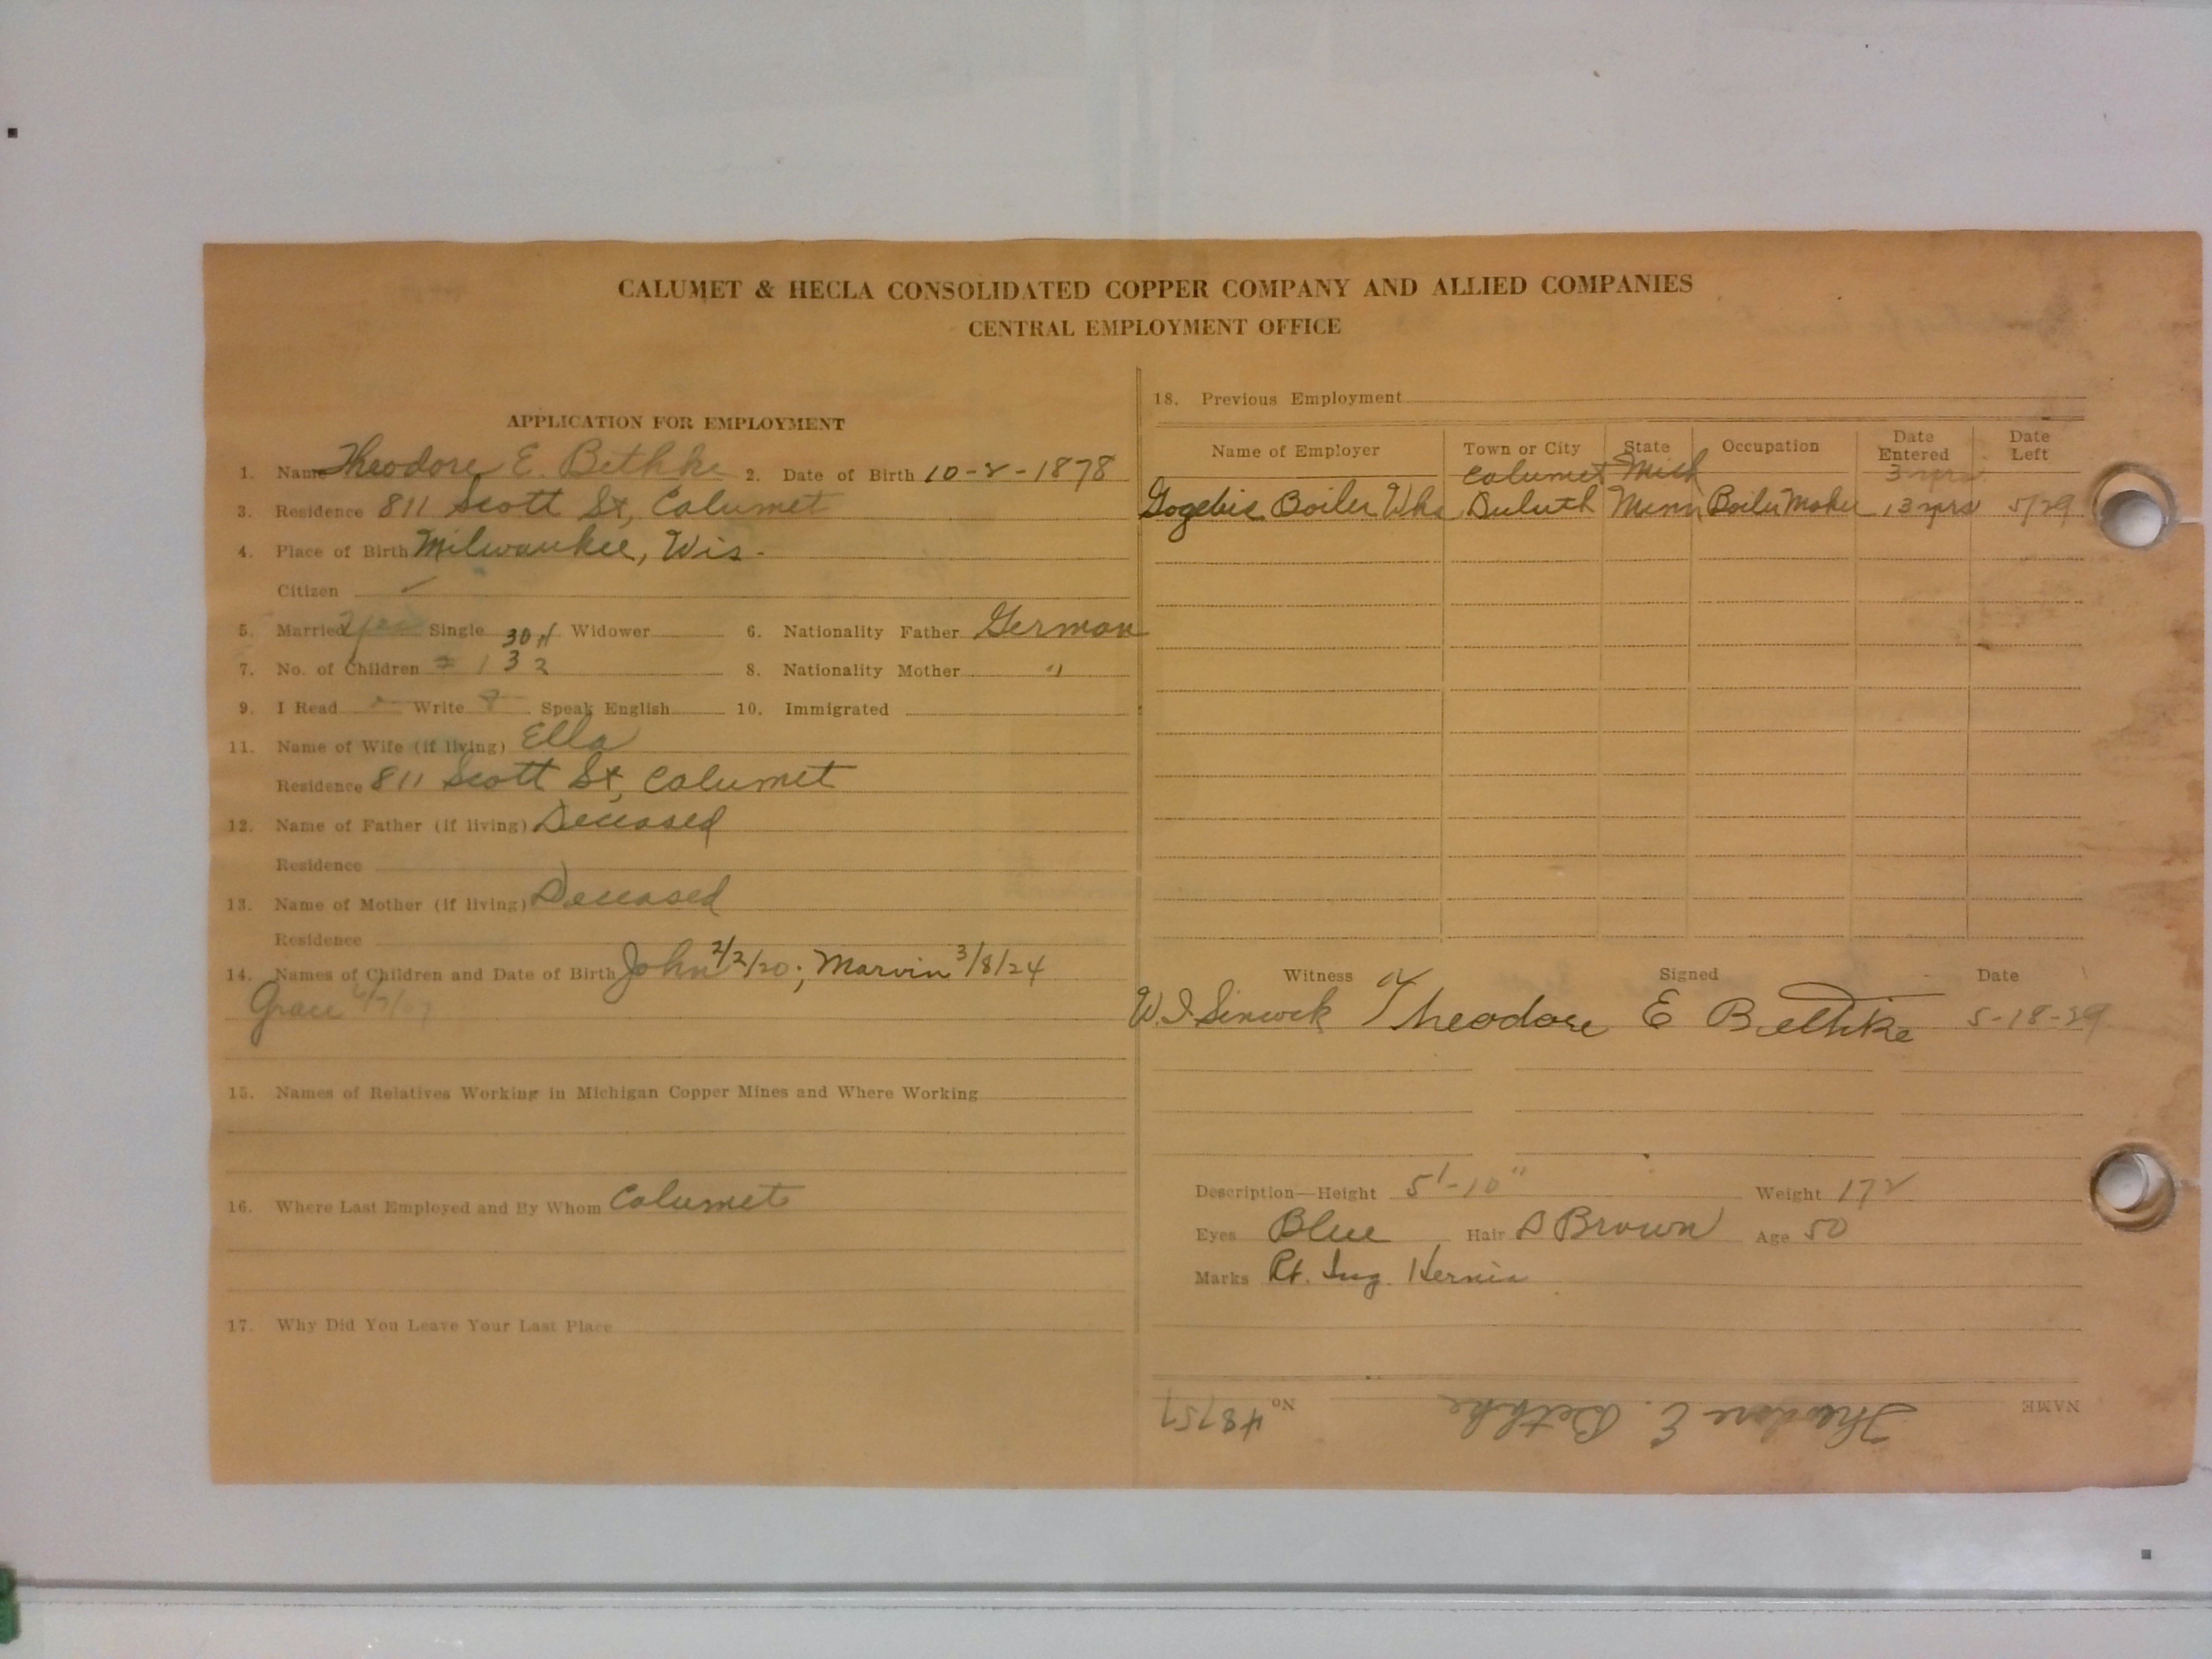 CALUMET & HECLA CONSOLIDATED COPPER COMPANY AND ALLIED COMPANIES
CENTRAL EMPLOYMENT OFFICE
APPLICATION FOR EMPLOYMENT
1. Name Theodore E. Bethke 2. Date of Birth 10-2-1878
3. Residence 811 Scott St, Calumet
4. Place of Birth Milwaukee, Wis.
Citizen ✓
5. Married Single Widower 6. Nationality Father German
7. No. of Children 8. Nationality Mother "
9. I Read Write Speak English 10. Immigrated
11. Name of Wife (if living) Ella
Residence 811 Scott St, Calumet
12. Name of Father (if living) Deceased
Residence
13. Name of Mother (if living) Deceased
Residence
14. Names of Children and Date of Birth John 2/2/20; Marvin 3/8/24
Grace
15. Names of Relatives Working in Michigan Copper Mines and Where Working
16. Where Last Employed and By Whom Calumet
17. Why Did You Leave Your Last Place
18. Previous Employment
Name of Employer Town or City State Occupation Date Entered Date Left
Calumet Mich 3 yrs
Gogebic Boiler Wks Duluth Minn Boiler Maker 13 yrs 5/29
Witness Signed Date
Theodore E Bethke 5-18-29
Description—Height 5'-10" Weight 172
Eyes Blue Hair D Brown Age 50
Marks Rt. Ing. Hernia
NAME Theodore E. Bethke No. 48757